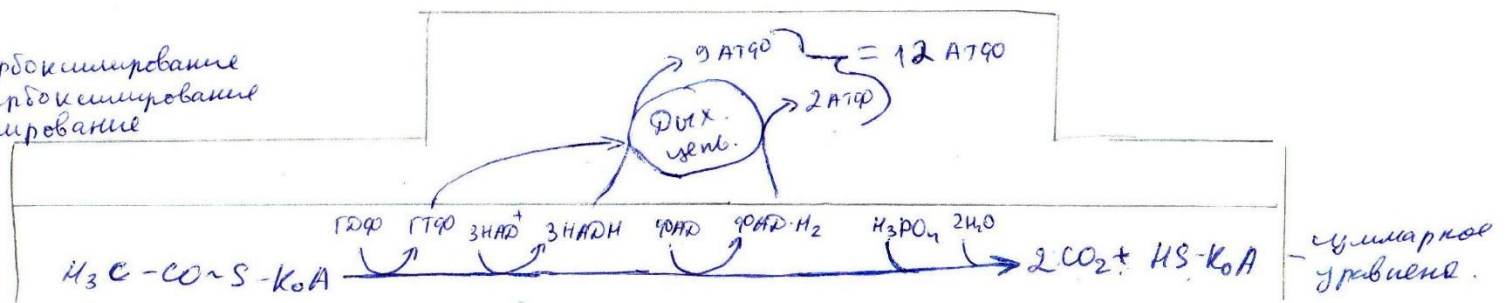 рбоксилирование
рбоксилирование
ирование
9 АТФ
= 12 АТФ
2 АТФ
Дых.
цепь.
ГДФ ГТФ 3НАД⁺ 3НАДН ФАД ФАД·H₂ H₃PO₄ 2H₂O
H₃C-CO~S-КоА 2CO₂ + HS-КоА - суммарное
уравнение.